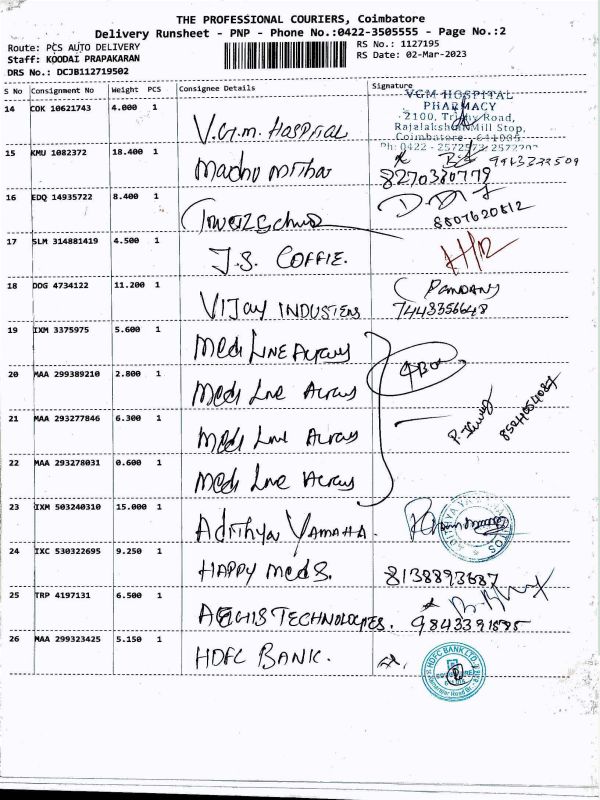 THE PROFESSIONAL COURIERS, Coimbatore
Delivery Runsheet - PNP - Phone No.:0422-3505555 - Page No.:2
Route: PCS AUTO DELIVERY
RS No.: 1127195
Staff: KOODAI PRAPAKARAN
RS Date: 02-Mar-2023
DRS No.: DCJB112719502
S No Consignment No Weight PCS Consignee Details Signature
VGM HOSPITAL
PHARMACY
2100, Trichy Road,
Rajalakshmi Mill Stop,
Coimbatore - 641005
Ph: 0422 - 2572573
14 COK 10621743 4.000 1 V.G.M. HOSPITAL
15 KMU 1082372 18.400 1
8270330779
16 EDQ 14935722 8.400 1
8807620812
17 SLM 314881419 4.500 1 J.S. COFFIE.
18 DDG 4734122 11.200 1 VIJAY INDUSTIES
7443356648
19 IXM 3375975 5.600 1 Medi LINE
20 MAA 299389210 2.800 1 Medi Line
21 MAA 293277846 6.300 1 Medi Line
8524054087
22 MAA 293278031 0.600 1 Medi Line
23 IXM 503240310 15.000 1 Adithya YAMAHA.
24 IXC 530322695 9.250 1 HAPPY Meds. 8138893687
25 TRP 4197131 6.500 1 AEGIS TECHNOLOGIES.
26 MAA 299323425 5.150 1 HDFC BANK.
HDFC BANK LTD